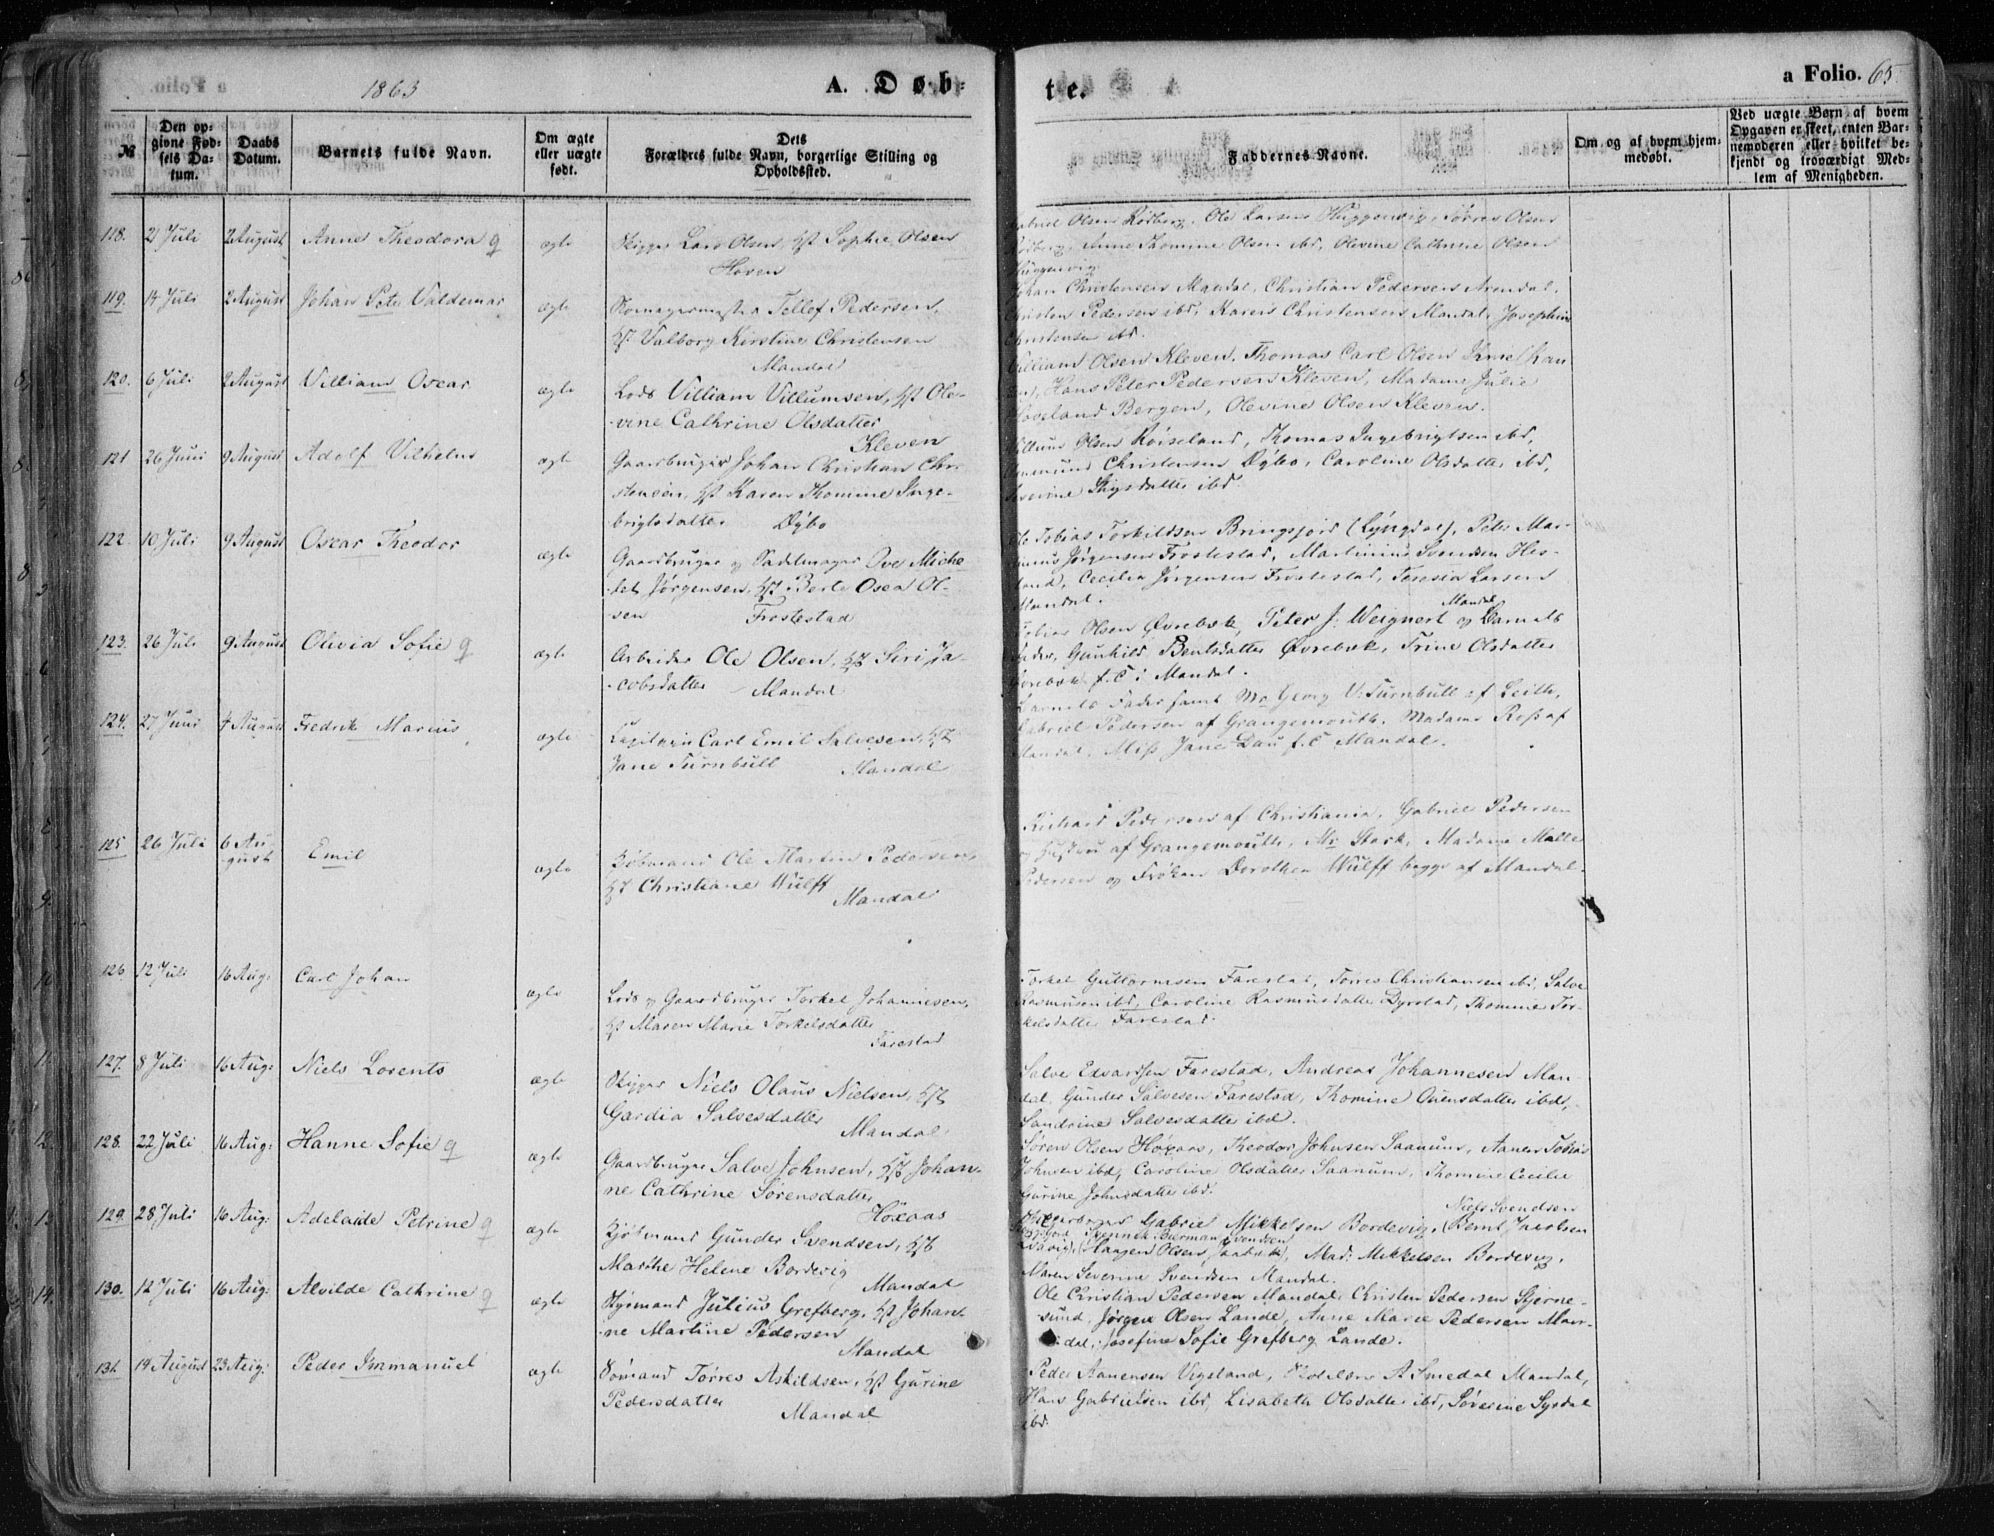 1863 A. Døb-
te. a Folio. 65
№ Den opgivne Fødsels Datum. Daabs Datum. Barnets fulde Navn. Om ægte eller uægte født. Dets Forældres fulde Navn, borgerlige Stilling og Opholdssted.
Faddernes Navne. Om og af hvem hjemmedøbt. Ved uægte Børn af hvem Opgaven er skeet, enten Barnemoderen eller hvilket bekjendt og troværdigt Medlem af Menigheden.
118. 2 Juli 2 August Anne Theodora ægte Skipper Lars Olsen, Hst Sophie Olsen
Hoven
Gabriel Olsen Rødberg, Ole Larsen Huggenvig, Tørres Olsen
Rødberg, Anne Thomine Olsen ibd, Olevine Cathrine Olsen
Huggenvig
119. 14 Juli 2 August Johan Peter Valdemar ægte Skomagermester Tellef Pedersen,
Hst Valborg Kirstine Christensen
Mandal
Johan Christensen Mandal, Christian Pedersen Arendal,
Christen Pedersen ibd, Karen Christensen Mandal, Josephine
Christensen ibd.
120. 6 Juli 2 August Villiam Oscar ægte Lods Villiam Villumsen, Hst Ole-
vine Cathrine Olsdatter
Kleven
Villiam Olsen Kleven, Thomas Carl Olsen
Hans Peter Pedersen Kleven, Madame Julie
Bergen, Olevine Olsen Kleven.
121 26 Juni 9 August Adolf Vilhelm ægte Gaardbruger Johan Christian Chri-
stensen, Hst Karen Thomine Inge-
brigtsdatter Dybo
Villum Olsen Røiseland, Thomas Ingebrigtsen ibd,
Christensen Dybo, Caroline Olsdatter ibd,
Severine ibd.
122. 10 Juli 9 August Oscar Theodor ægte Gaardbruger og Sadelmager Ove Miche-
let Jørgensen, Hst Berte Osea Ol-
sen Frostestad
Tobias Torkildsen Bringsfjord (Lyngdal), Peter Mar-
Jørgensen Frostestad, Martinius Svendsen Hes-
land, Cecilia Jørgensen Frostestad, Teresia Larsen
Mandal.
123. 26 Juli 9 August Olivia Sofie ægte Arbeider Ole Olsen, Hst Siri Ja-
cobsdatter Mandal
Mandal
Tobias Olsen Øvrebøk, Peter J. Weignert og Barnets
Fader, Gunhild Bentsdatter Øvrebøk, Trine Olsdatter
Øvrebøk f. C i Mandal.
124. 27 Juni 4 August Fredrik Marius ægte Capitain Carl Emil Salvesen, Hst
Jane Turnbull Mandal
Barnets Fader samt Mr Georg V. Turnbull af Leith,
Gabriel Pedersen af Grangemouth, Madame Ross af
Mandal, Miss Jane Dau f. C Mandal.
125 26 Juli 6 Au-
gust Emil ægte Kjøbmand Ole Martin Pedersen,
Hst Christiane Wulff
Mandal
Richard Pedersen af Christiania, Gabriel Pedersen
og Hustru af Grangemouth, Mr Stork, Madame Malle
Pedersen og Frøken Dorothea Wulff begge af Mandal.
126 12 Juli 16 Aug: Carl Johan ægte Lods og Gaardbruger Torkel Johannesen,
Hst Maren Marie Torkelsdatter
Farestad
Torkel Guttormsen Farestad, Tørres Christiansen ibd, Salve
Rasmusen ibd, Caroline Rasmusdatter Dyrstad, Thomine Tor-
kelsdatter Farestad.
127. 8 Juli 16 Aug: Niels Lorents ægte Skipper Niels Olaus Nielsen, Hst
Gardia Salvesdatter
Mandal
Salve Edvardsen Farestad, Andreas Johannesen Man-
dal, Gunder Salvesen Farestad, Thomine Ouensdatter ibd,
Sandrine Salvesdatter ibd.
128. 22 Juli 16 Aug: Hanne Sofie ægte Gaardbruger Salve Johnsen, Hst Johan-
ne Cathrine Sørensdatter
Høxaas
Søren Olsen Høxaas, Theodor Johnsen Saanum, Aanen Tobias
Johnsen ibd, Caroline Olsdatter Saanum, Thomine Cecilie
Gurine Johnsdatter ibd.
129. 28 Juli 16 Aug: Adelaide Petrine ægte Kjøbmand Gunder Svendsen, Hst
Marthe Helene Bordevig
Mandal
Niels Svendsen
Gabriel Mikkelsen Bordevig, Bernt Jacobsen
Haagen Olsen, Mad: Mikkelsen Bordevig,
Maren Severine Svendsen Mandal.
130. 12 Juli 16 Aug: Alvilde Cathrine ægte Styrmand Julius Grefberg, Hst Johan-
ne Martine Pedersen
Mandal
Ole Christian Pedersen Mandal, Christen Pedersen Stjerne-
sund, Jørgen Olsen Lande, Anne Marie Pedersen Man-
dal, Josefine Sofie Grefberg Lande.
131. 14 August 23 Aug: Peder Immanuel ægte Sømand Tørres Askildsen, Hst Gurine
Pedersdatter
Mandal
Peder Aanensen Vigeland, A Smedal Mandal,
Hans Gabrielsen ibd, Lisabeth Olsdatter ibd, Sørine Sysdal
ibd.